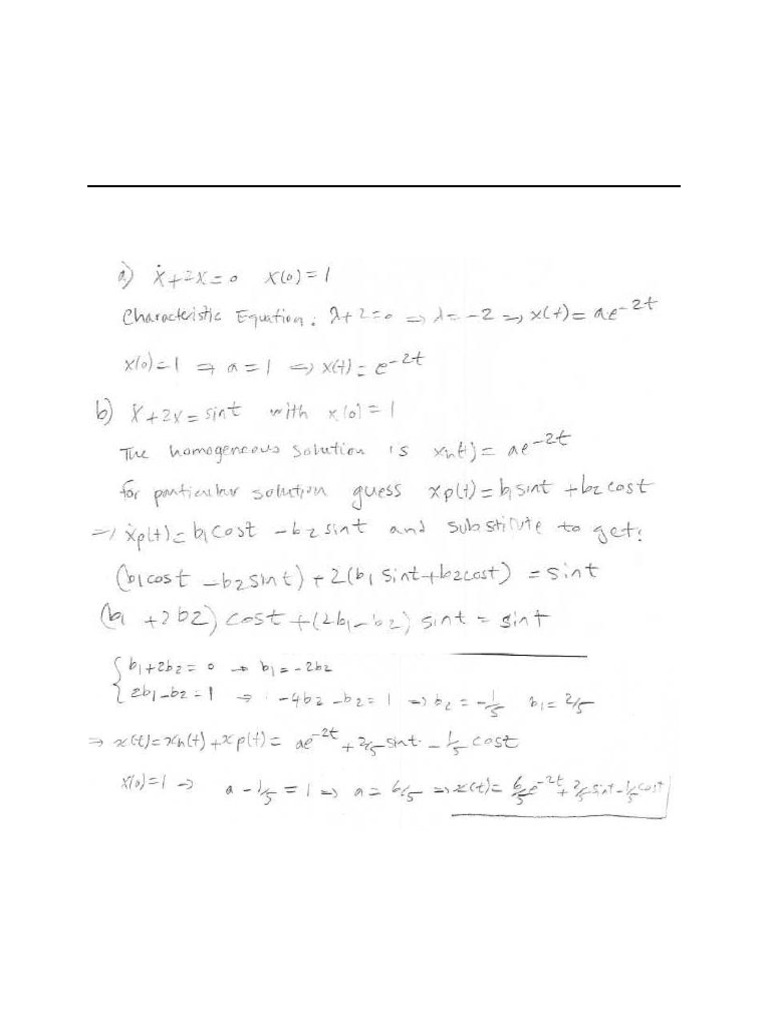 a) ẋ+2x=0 x(0)=1
Characteristic Equation: λ+2=0 ⇒ λ=-2 ⇒ x(t)=ae^-2t
x(0)=1 ⇒ a=1 ⇒ x(t)=e^-2t
b) ẋ+2x=sint with x(0)=1
The homogeneous solution is xh(t)=ae^-2t
for particular solution guess xp(t)=b1sint+b2cost
⇒ ẋp(t)=b1cost-b2sint and substitute to get:
(b1cost-b2sint)+2(b1sint+b2cost)=sint
(b1+2b2)cost+(2b1-b2)sint=sint
{b1+2b2=0 → b1=-2b2
{2b1-b2=1 ⇒ -4b2-b2=1 ⇒ b2=-1/5 b1=2/5
⇒ x(t)=xh(t)+xp(t)=ae^-2t+2/5sint-1/5cost
x(0)=1 ⇒ a-1/5=1 ⇒ a=6/5 ⇒ x(t)=6/5e^-2t+2/5sint-1/5cost